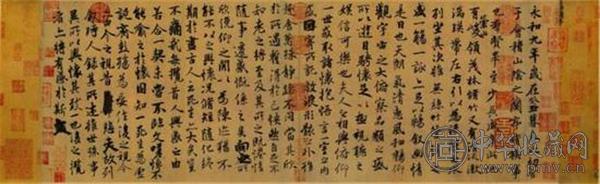 永和九年歲在癸丑暮春之初會
于會稽山陰之蘭亭脩禊事
也羣賢畢至少長咸集此地
有峻領茂林脩竹又有清流激
湍暎帶左右引以為流觴曲水
列坐其次雖無絲竹管弦之
盛一觴一詠亦足以暢敘幽情
是日也天朗氣清惠風和暢仰
觀宇宙之大俯察品類之盛
所以遊目騁懷足以極視聽之
娛信可樂也夫人之相與俯仰
一世或取諸懷抱悟言一室之內
或因寄所託放浪形骸之外雖
趣舍萬殊靜躁不同當其欣
於所遇蹔得於己怏然自足不
知老之將至及其所之既惓情
隨事遷感慨係之矣向之所
欣俛仰之閒以為陳迹猶不
能不以之興懷況脩短隨化終
期於盡古人云死生亦大矣豈
不痛哉每攬昔人興感之由
若合一契未嘗不臨文嗟悼不
能喻之於懷固知一死生為虛
誕齊彭殤為妄作後之視今
亦由今之視昔悲夫故列
敘時人錄其所述雖世殊事
異所以興懷其致一也後之攬
者亦將有感於斯文
中华收藏网
www.pmv.cn